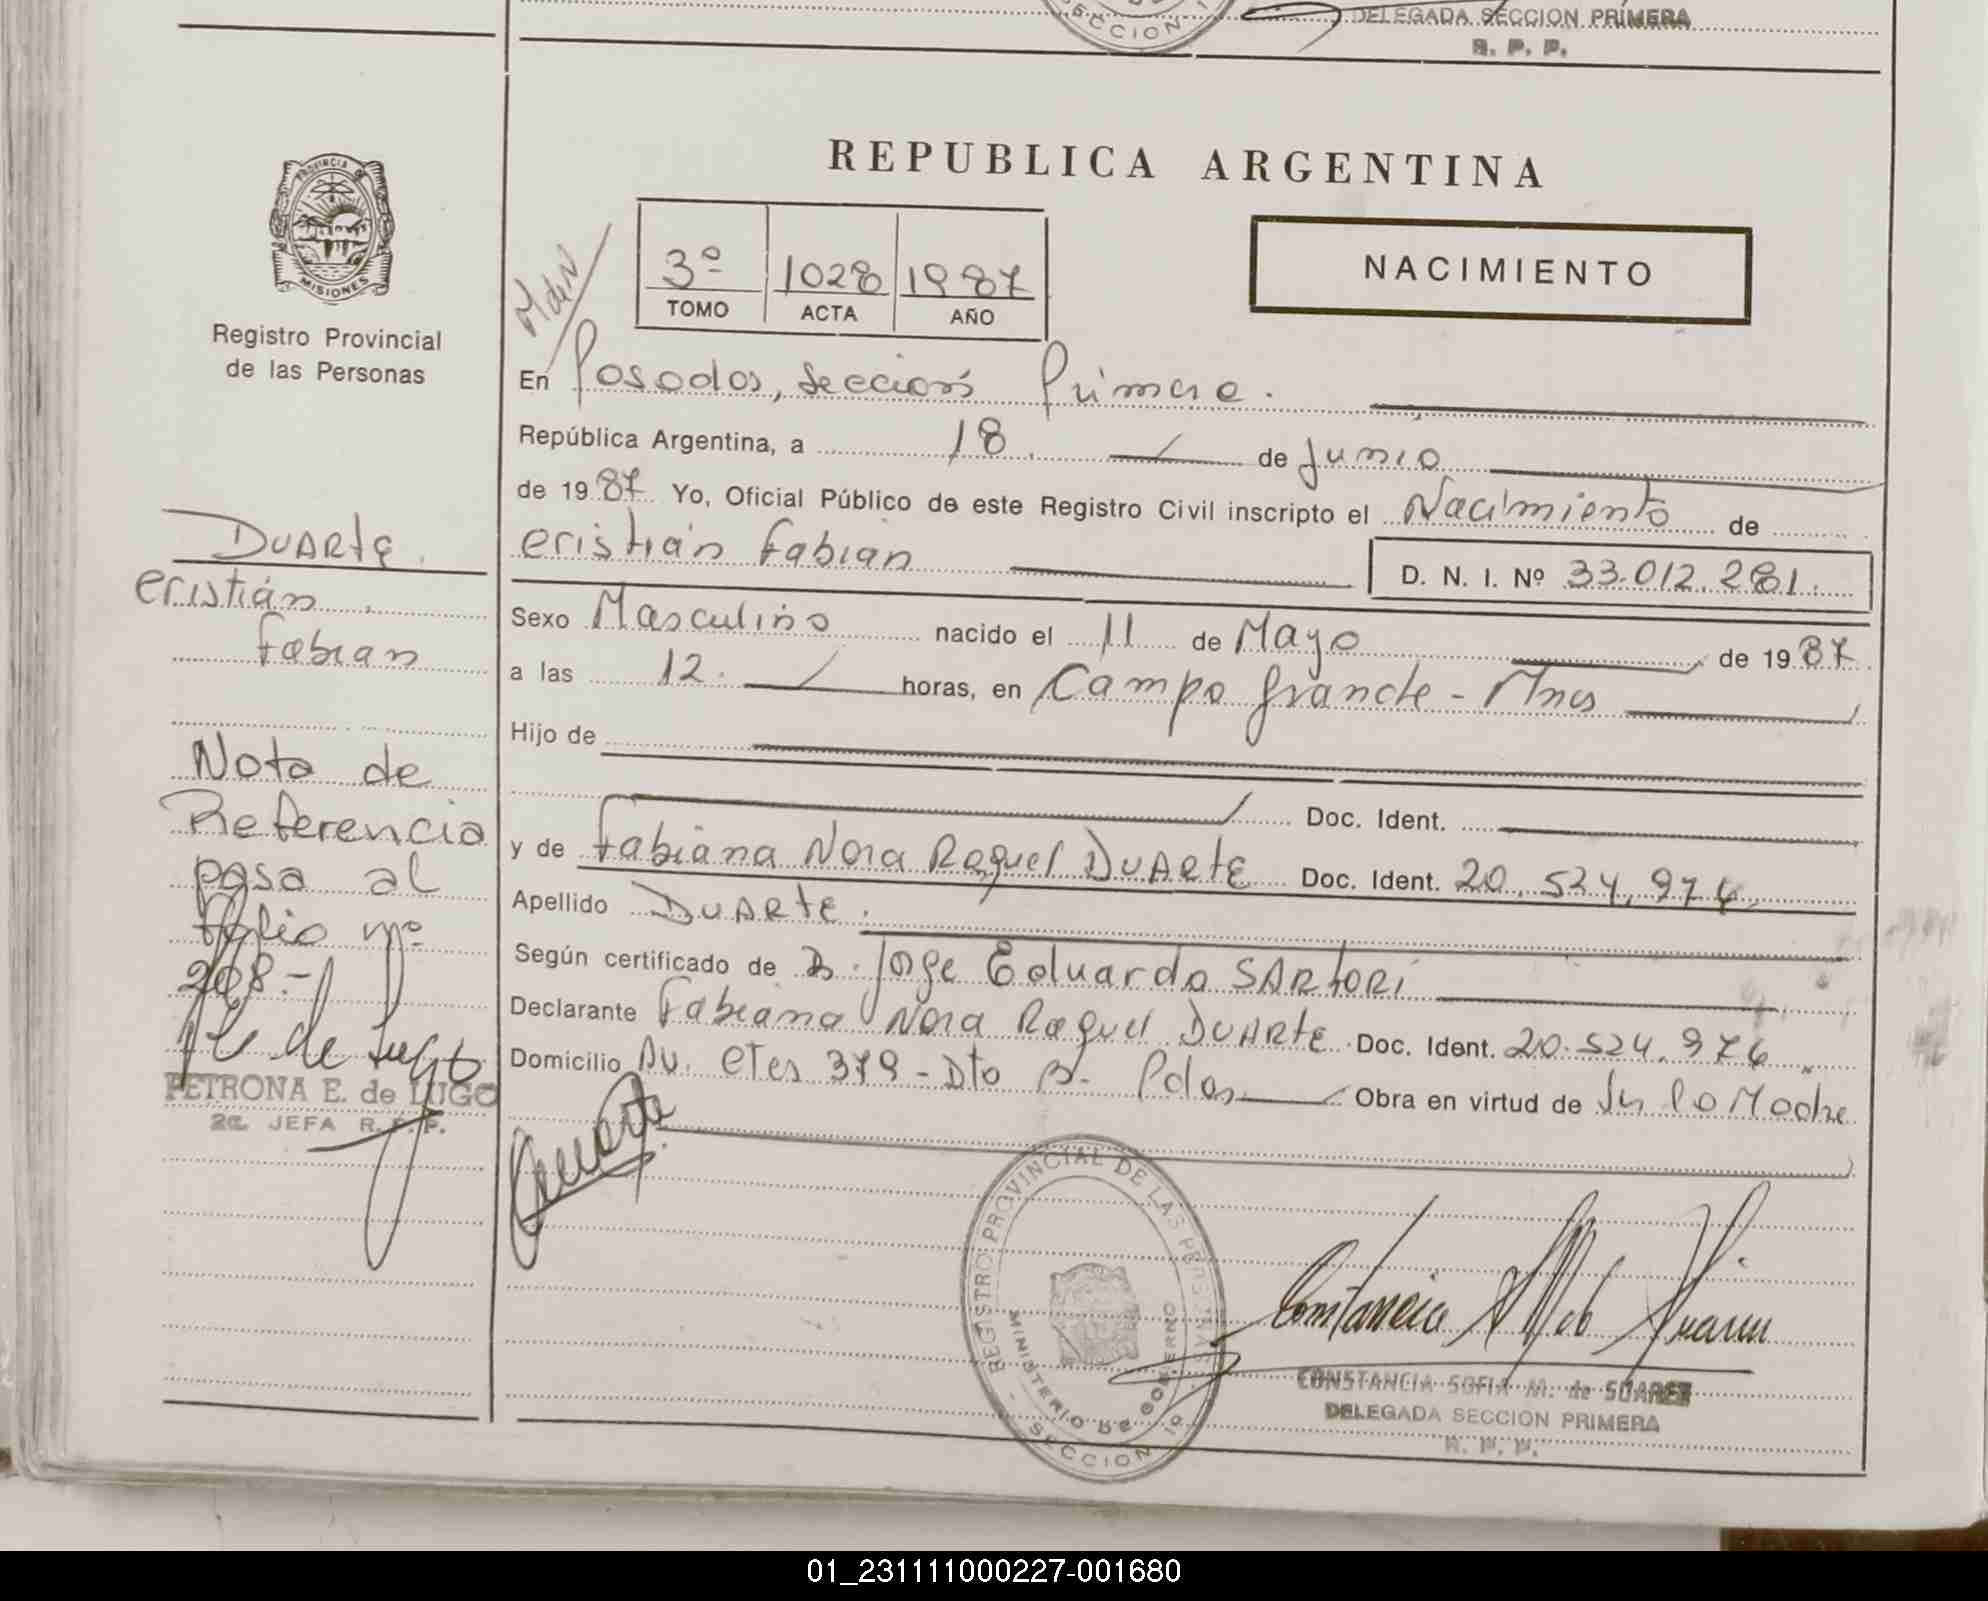 SECCION 1
DELEGADA SECCION PRIMERA
R. P. P.
REPUBLICA ARGENTINA
PROVINCIA DE
MISIONES
Registro Provincial
de las Personas
3º 1028 1987
TOMO ACTA AÑO
NACIMIENTO
En Posadas, Sección Primera.
República Argentina, a 18 de Junio
de 1987 Yo, Oficial Público de este Registro Civil inscripto el Nacimiento de
Cristián Fabian
D. N. I. Nº 33.012.281.
Sexo Masculino nacido el 11 de Mayo de 1987
a las 12. horas, en Campo Grande - Mnes
Hijo de
Doc. Ident.
y de Fabiana Nora Raquel DUARTE Doc. Ident. 20.524.976
Apellido DUARTE.
Según certificado de D. Jorge Eduardo SARTORI
Declarante Fabiana Nora Raquel DUARTE Doc. Ident. 20.524.976
Domicilio Av. Ctes 379 - Dto B. Pdas Obra en virtud de Ser la Madre
DUARTE.
Cristián
Fabian
Nota de
Referencia
pasa al
folio nº
208.-
PETRONA E. de LUGO
2a. JEFA R. P. P.
Duarte
REGISTRO PROVINCIAL DE LAS PERSONAS
MINISTERIO DE GOBIERNO
SECCION 1º
CONSTANCIA SOFIA M. de SUAREZ
DELEGADA SECCION PRIMERA
R. P. P.
01_231111000227-001680